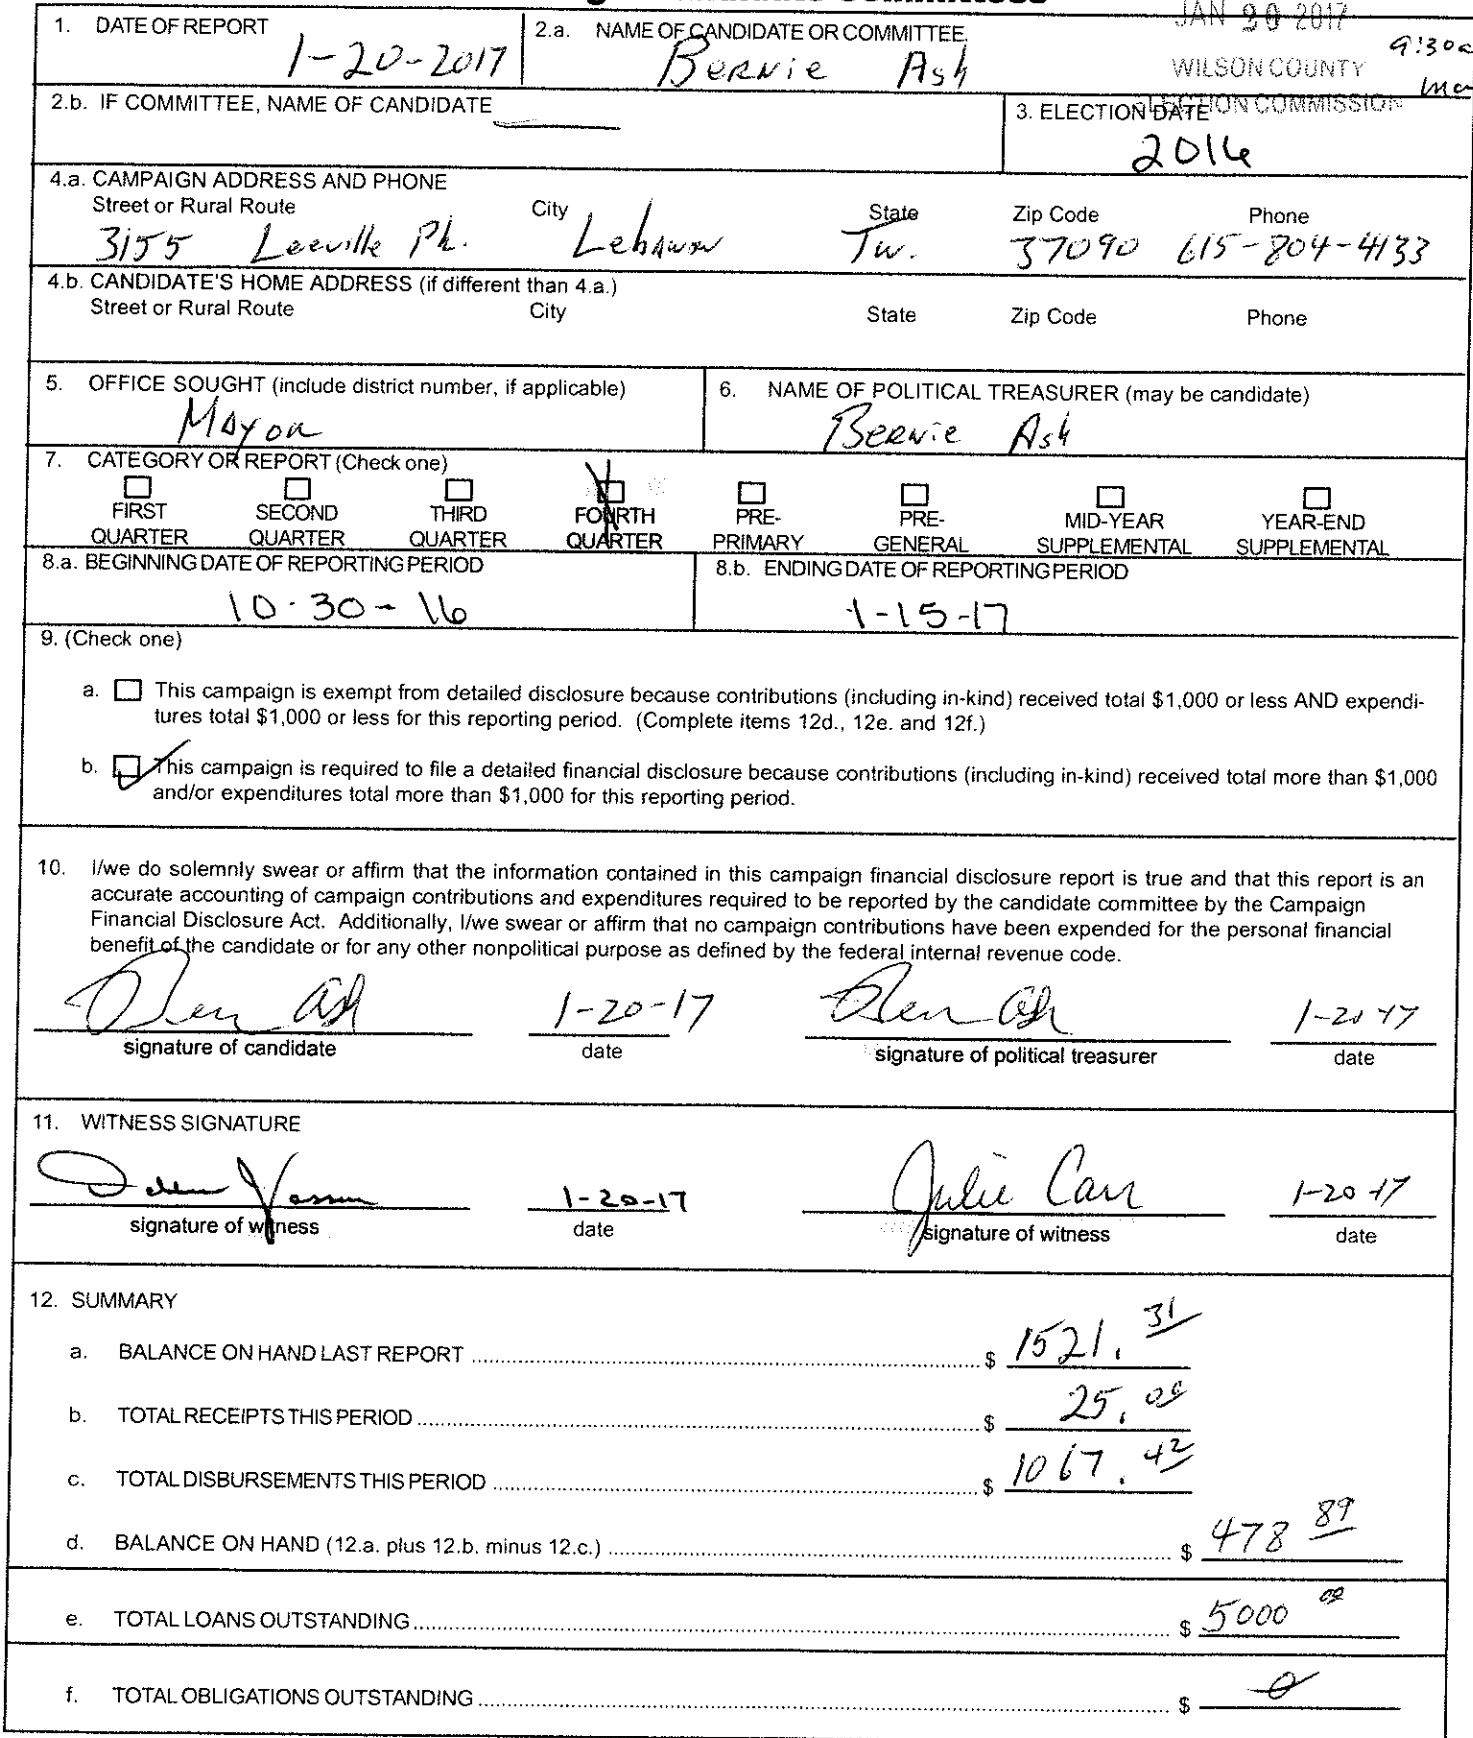 Committees
JAN 20 2017
1. DATE OF REPORT
1-20-2017
2.a. NAME OF CANDIDATE OR COMMITTEE
Bernie Ash
WILSON COUNTY
ELECTION COMMISSION
9:30a
2.b. IF COMMITTEE, NAME OF CANDIDATE
3. ELECTION DATE
2016
4.a. CAMPAIGN ADDRESS AND PHONE
Street or Rural Route City State Zip Code Phone
3155 Leeville Pk. Lebanon Tn. 37090 615-804-4133
4.b. CANDIDATE'S HOME ADDRESS (if different than 4.a.)
Street or Rural Route City State Zip Code Phone
5. OFFICE SOUGHT (include district number, if applicable)
Mayor
6. NAME OF POLITICAL TREASURER (may be candidate)
Bernie Ash
7. CATEGORY OR REPORT (Check one)
FIRST QUARTER
SECOND QUARTER
THIRD QUARTER
FOURTH QUARTER
PRE-PRIMARY
PRE-GENERAL
MID-YEAR SUPPLEMENTAL
YEAR-END SUPPLEMENTAL
8.a. BEGINNING DATE OF REPORTING PERIOD
10-30-16
8.b. ENDING DATE OF REPORTING PERIOD
1-15-17
9. (Check one)
a. This campaign is exempt from detailed disclosure because contributions (including in-kind) received total $1,000 or less AND expendi-
tures total $1,000 or less for this reporting period. (Complete items 12d., 12e. and 12f.)
b. This campaign is required to file a detailed financial disclosure because contributions (including in-kind) received total more than $1,000
and/or expenditures total more than $1,000 for this reporting period.
10. I/we do solemnly swear or affirm that the information contained in this campaign financial disclosure report is true and that this report is an
accurate accounting of campaign contributions and expenditures required to be reported by the candidate committee by the Campaign
Financial Disclosure Act. Additionally, I/we swear or affirm that no campaign contributions have been expended for the personal financial
benefit of the candidate or for any other nonpolitical purpose as defined by the federal internal revenue code.
Ash 1-20-17 Ash 1-20-17
signature of candidate date signature of political treasurer date
11. WITNESS SIGNATURE
1-20-17 Julie Carr 1-20-17
signature of witness date signature of witness date
12. SUMMARY
a. BALANCE ON HAND LAST REPORT $ 1521.31
b. TOTAL RECEIPTS THIS PERIOD $ 25.00
c. TOTAL DISBURSEMENTS THIS PERIOD $ 1067.42
d. BALANCE ON HAND (12.a. plus 12.b. minus 12.c.) $ 478 89
e. TOTAL LOANS OUTSTANDING $ 5000 00
f. TOTAL OBLIGATIONS OUTSTANDING $ 0